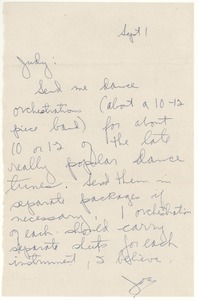 Sept 1
Judy:
Send me dance
orchestrations (about a 10-12
piece band) for about
10 or 12 of the late
really popular dance
tunes. Send them in
separate package if
necessary. 1 orchestration
of each. Should carry
separate sheets for each
instrument, I believe.